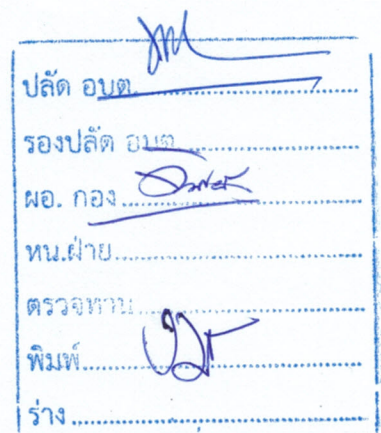 ปลัด อบต.
รองปลัด อบต.
ผอ. กอง
หน.ฝ่าย
ตรวจทาน
พิมพ์
ร่าง